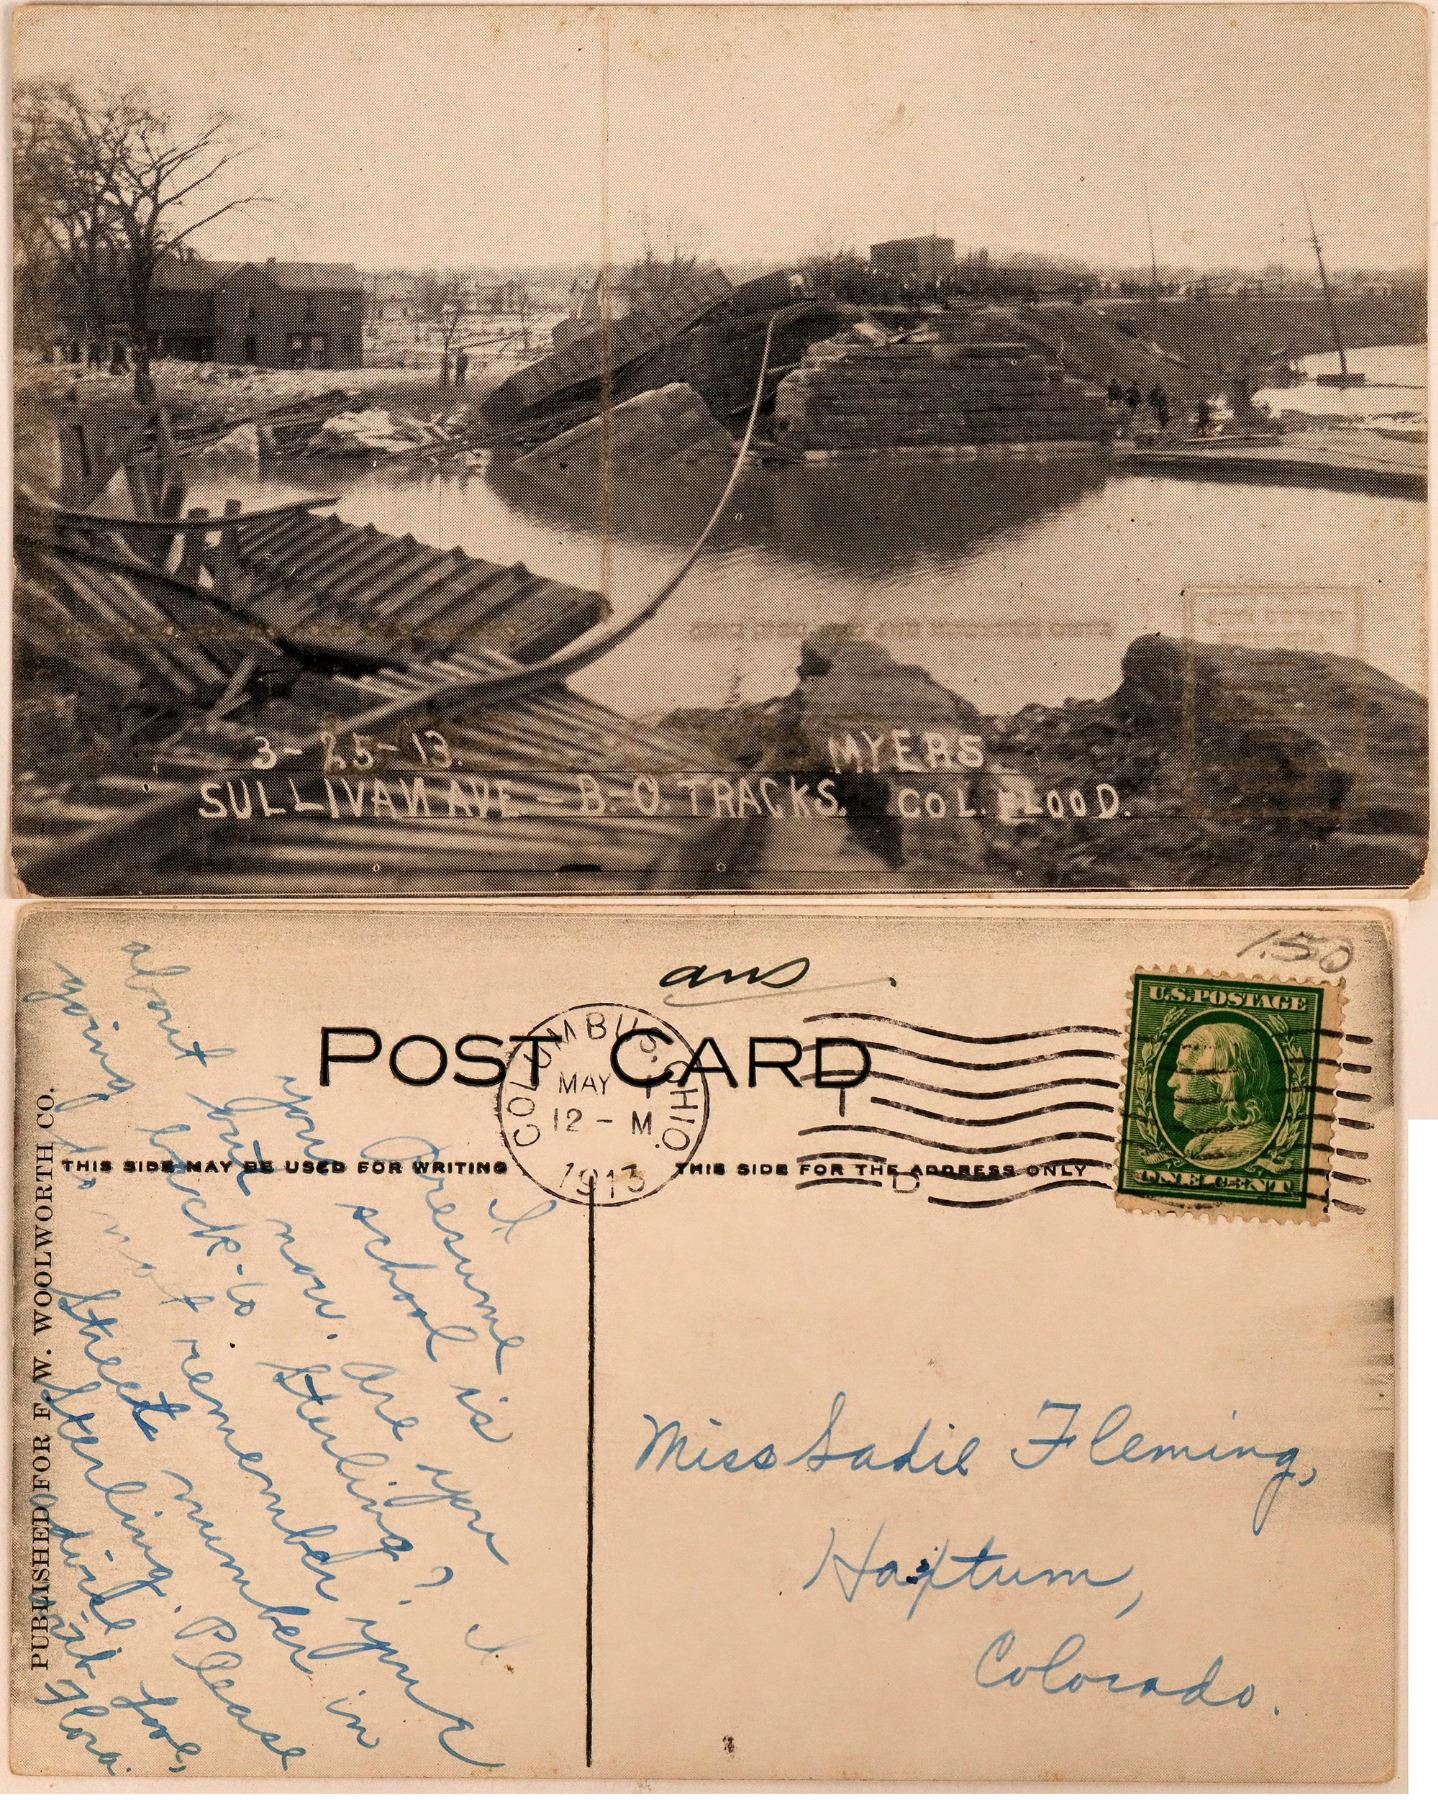 3-25-13. MYERS
SULLIVAN AVE - B-O. TRACKS. COL. FLOOD.
1.50
ans
POST CARD
COLUMBUS, OHIO.
MAY 1
12 - M
1913
U.S. POSTAGE
ONE CENT
THIS SIDE MAY BE USED FOR WRITING
THIS SIDE FOR THE ADDRESS ONLY
PUBLISHED FOR F. W. WOOLWORTH CO.
I
Presume
your school is
about out now. Are you
going back-to Sterling? I
do not remember your
Street number in
Sterling. Please
advise
with love,
Flora.
Miss Sadie Fleming,
Haxtum,
Colorado.